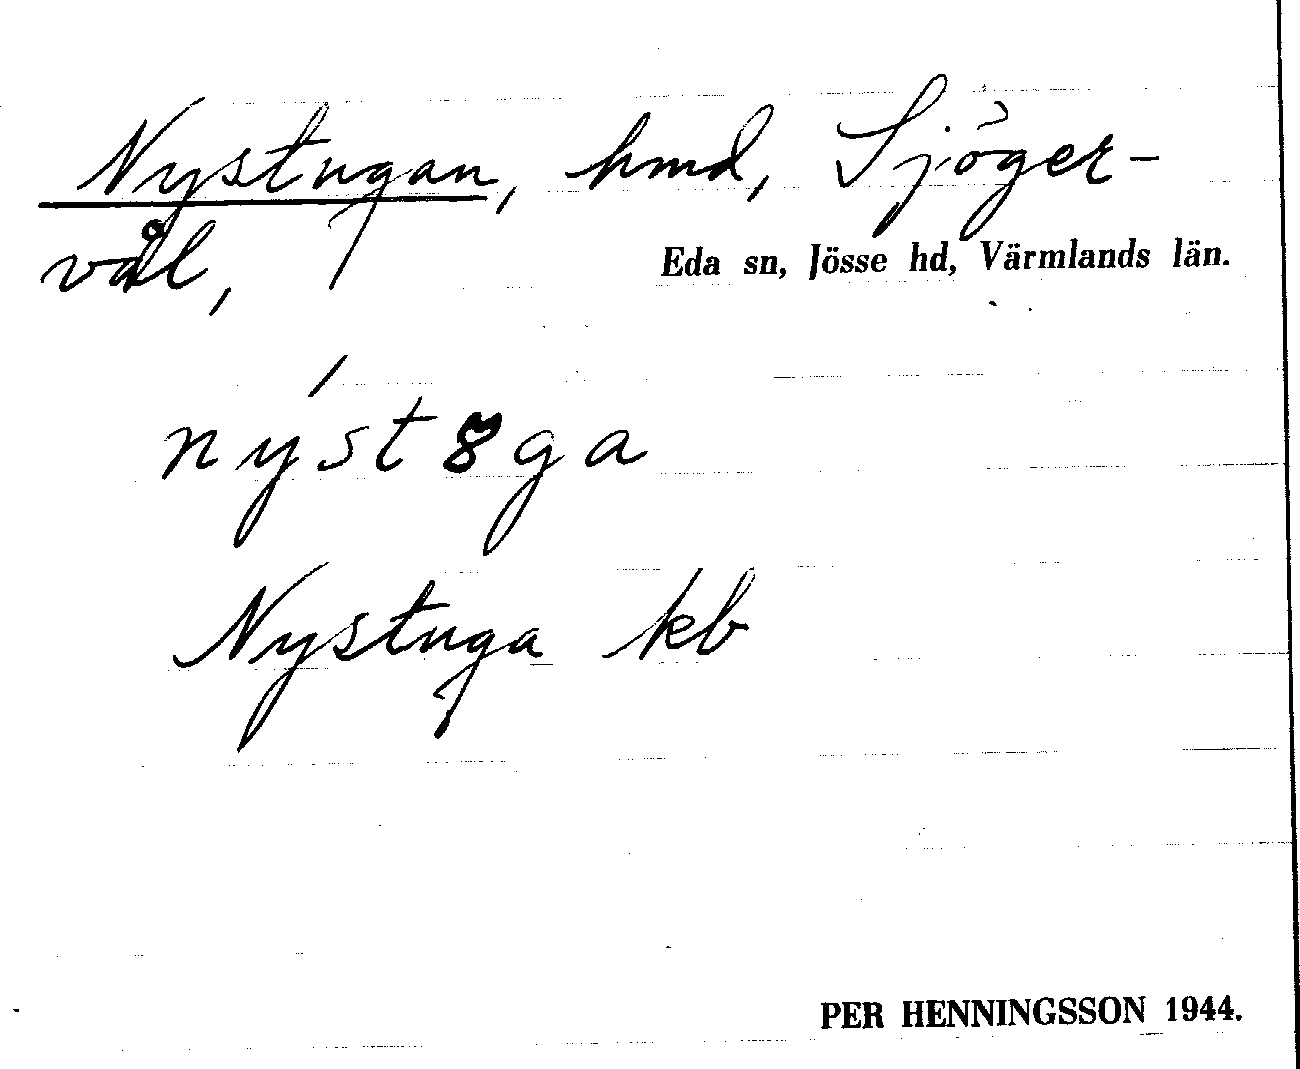 Nystugan, hmd, Sjöger-
vål,
Eda sn, Jösse hd, Värmlands län.
nýst8ga
Nystuga kb
PER HENNINGSSON 1944.